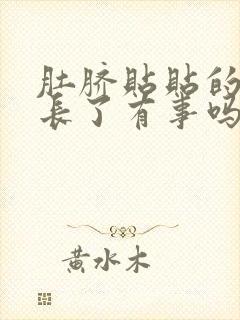 肚脐贴贴的
长了有事吗
黄水木